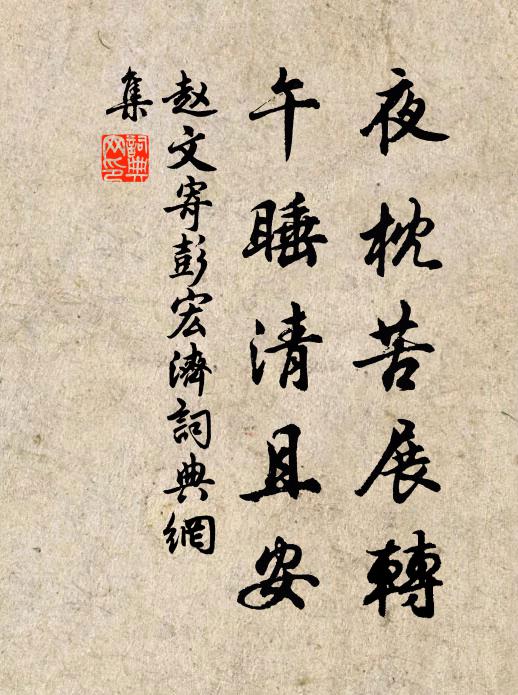 夜枕苦展轉
午睡清且安
赵文寄彭宏濟詞典網
集
詞典网印